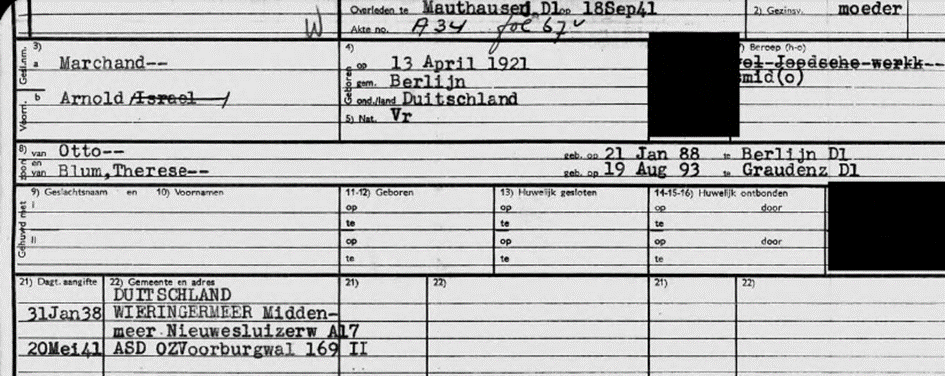 Overleden te Mauthausen Dl op 18Sep41 2) Gezinsv. moeder
W Akte no. A 34 fol 67v
3) Gesl.nm. a Marchand--
4) Geboren op 13 April 1921
gem. Berlijn
ond./land Duitschland
5) Nat. Vr
) Beroep (h-o)
el-Joodsche-werkk--
mid(o)
Voorn. b Arnold /Israel /
8) zoon van Otto-- geb. op 21 Jan 88 te Berlijn Dl
en van Blum,Therese-- geb. op 19 Aug 93 te Graudenz Dl
Gehuwd met 9) Geslachtsnaam en 10) Voornamen 11-12) Geboren 13) Huwelijk gesloten 14-15-16) Huwelijk ontbonden
I op op op door
te te te
II op op op door
te te te
21) Dagt. aangifte 22) Gemeente en adres 21) 22) 21) 22)
DUITSCHLAND
31Jan38 WIERINGERMEER Midden-
meer Nieuwesluizerw A17
20Mei41 ASD OZVoorburgwal 169 II